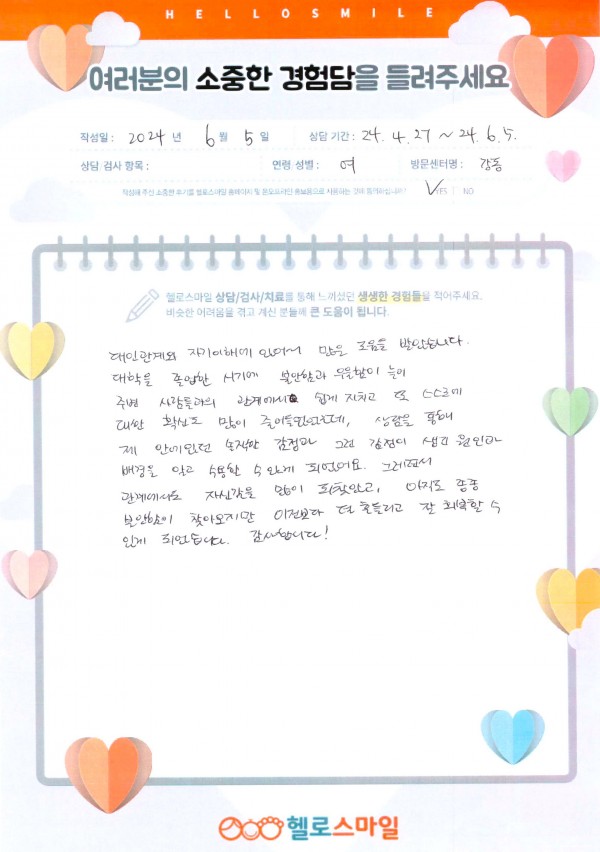 HELLOSMILE
여러분의 소중한 경험담을 들려주세요
작성일 : 2024 년 6 월 5 일 상담 기간 : 24. 4. 27 ~ 24. 6. 5.
상담·검사 항목 : 연령·성별 : 여 방문센터명 : 강동
작성해 주신 소중한 후기를 헬로스마일 홈페이지 및 온오프라인 홍보용으로 사용하는 것에 동의하십니까? ✓YES NO
헬로스마일 상담/검사/치료를 통해 느끼셨던 생생한 경험들을 적어주세요.
비슷한 어려움을 겪고 계신 분들께 큰 도움이 됩니다.
대인관계와 자기이해에 있어서 많은 도움을 받았습니다.
대학을 졸업한 시기에 불안함과 우울함이 높아
주변 사람들과의 관계에서 쉽게 지치고 또 스스로에
대한 확신도 많이 줄어들었었는데, 상담을 통해
제 안에있던 솔직한 감정과 그런 감정이 생긴 원인과
배경을 알고 수용할 수 있게 되었어요. 그러면서
관계에서도 자신감을 많이 되찾았고, 아직도 종종
불안함이 찾아오지만 이전보다 덜 흔들리고 잘 회복할 수
있게 되었습니다. 감사합니다!
헬로스마일